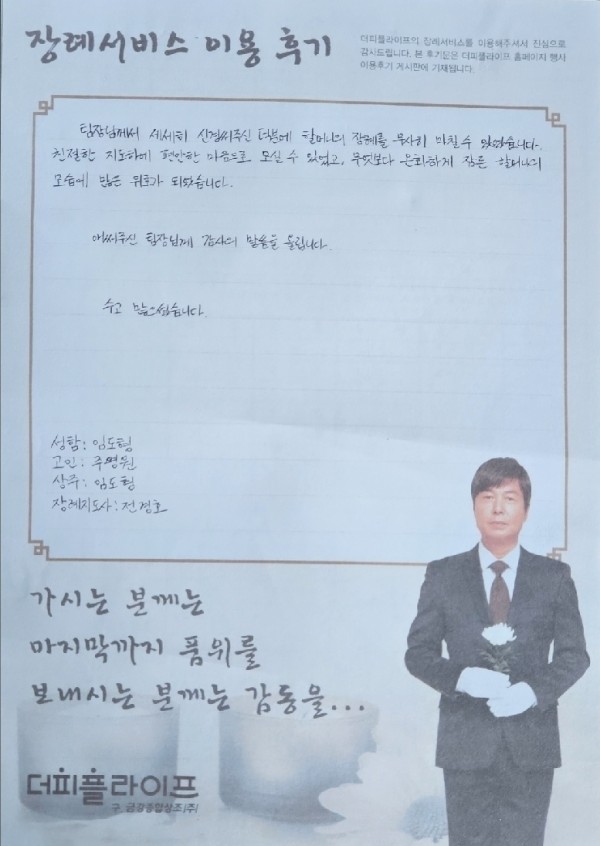 장례서비스 이용 후기
더피플라이프의 장례서비스를 이용해주셔서 진심으로
감사드립니다. 본 후기문은 더피플라이프 홈페이지 행사
이용후기 게시판에 기재됩니다.
팀장님께서 세세히 신경써주신 덕분에 할머니의 장례를 무사히 마칠 수 있었습니다.
친절한 지도하에 편안한 마음으로 모실 수 있었고, 무엇보다 온화하게 잠든 할머니의
모습에 많은 위로가 되었습니다.
애써주신 팀장님께 감사의 말씀을 올립니다.
수고 많으셨습니다.
성함: 임도형
고인: 주명원
상주: 임도형
장례지도사: 전경호
가시는 분께는
마지막까지 품위를
보내시는 분께는 감동을...
더피플라이프
구. 금강종합상조(주)